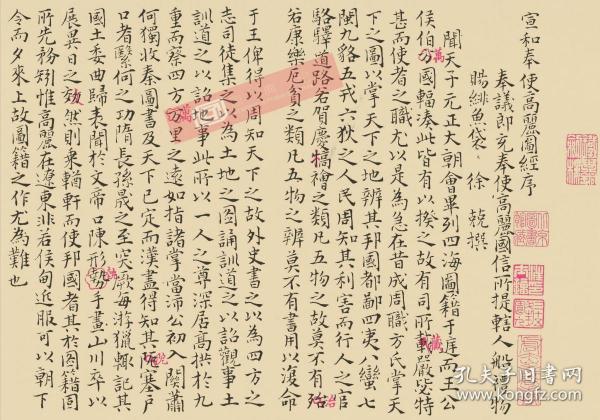 宣和奉使高麗圖經序
奉議郎充奉使高麗國信所提轄人船禮物
賜緋魚袋徐兢撰
聞天子元正大朝會畢列四海圖籍于庭而王公
侯伯萬國輻湊此皆有以揆之故有司所藏嚴毖特
甚而使者之職尤以是為急在昔成周職方氏掌天
下之圖以掌天下之地辨其邦國都鄙四夷八蠻七
閩九貉五戎六狄之人民周知其利害而行人之官
駱驛道路若賀慶
之類凡五物之故莫不有治
若康樂厄貧之類凡五物之辨莫不有書用以復命
于王俾得以周知天下之故外史書之以為四方之
志司徒集之以為土地之圖誦訓道之以詔觀事土
訓道之以詔地事此所以一人之尊深居高拱於九
重而察四方萬里之遠如指諸掌當沛公初入關蕭
何獨收秦圖書及天下已定而漢盡得知其阨塞戶
口者繄何之功隋長孫晟之至突厥每游獵輒記其
國土委曲歸表聞於文帝口陳形勢手畫山川卒以
展異日之效然則乘輶軒而使邦國者其於圖籍固
所先務矧惟高麗在遼東非若侯甸近服可以朝下
令而夕來上故圖籍之作尤為難也
孔夫子舊书网